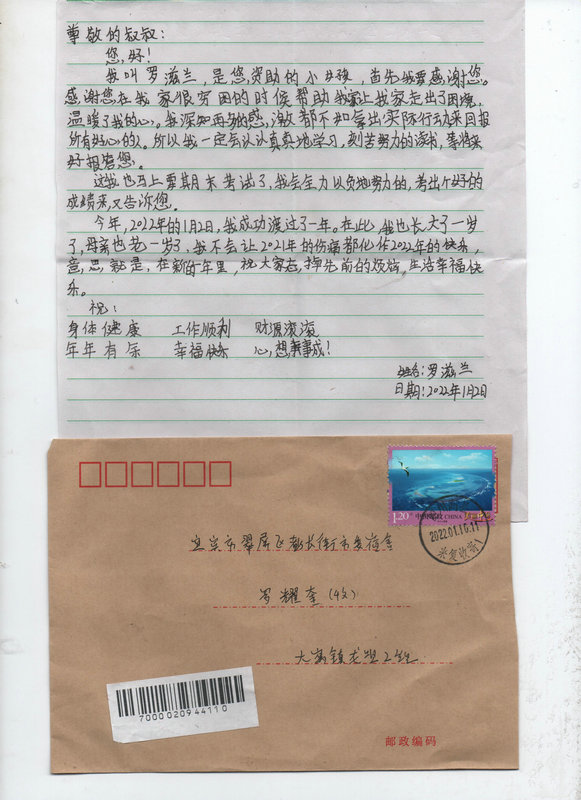 尊敬的叔叔:
您,好!
我叫罗滋兰,是您,资助的小女孩,首先我要感,谢您。
感,谢您在我家很穷困的时候帮助我家,让我家走出了困境,
温暖了我的心,我深知再多的感,激都不如拿出实际行动来回报
所有好心的人。所以我一定会认认真真地学习,刻苦努力的读书,事将来
好报答您。
这我也马上要期末考试了,我会全力以负地努力的,考出个好的
成绩来,又告诉您。
今年,2022年的1月2日,我成功渡过了一年。在此,我也长大了一岁
了,母亲也老一岁了,我不会让2021年的伤痛都化作2022年的快乐,
意,思就是,在新的一年里,祝大家忘掉先前的烦恼,生活幸福快
乐。
祝:
身体健康 工作顺利 财源滚滚
年年有余 幸福快乐 心,想事事成!
姓名:罗滋兰
日期:2022年1月2日
1.20 中国邮政 CHINA
2022.01.16.11
兴文收寄
宜宾市翠屏区都长街市委宿舍
罗耀奎(收)
大窝镇龙塘2组
7000020944110
邮政编码